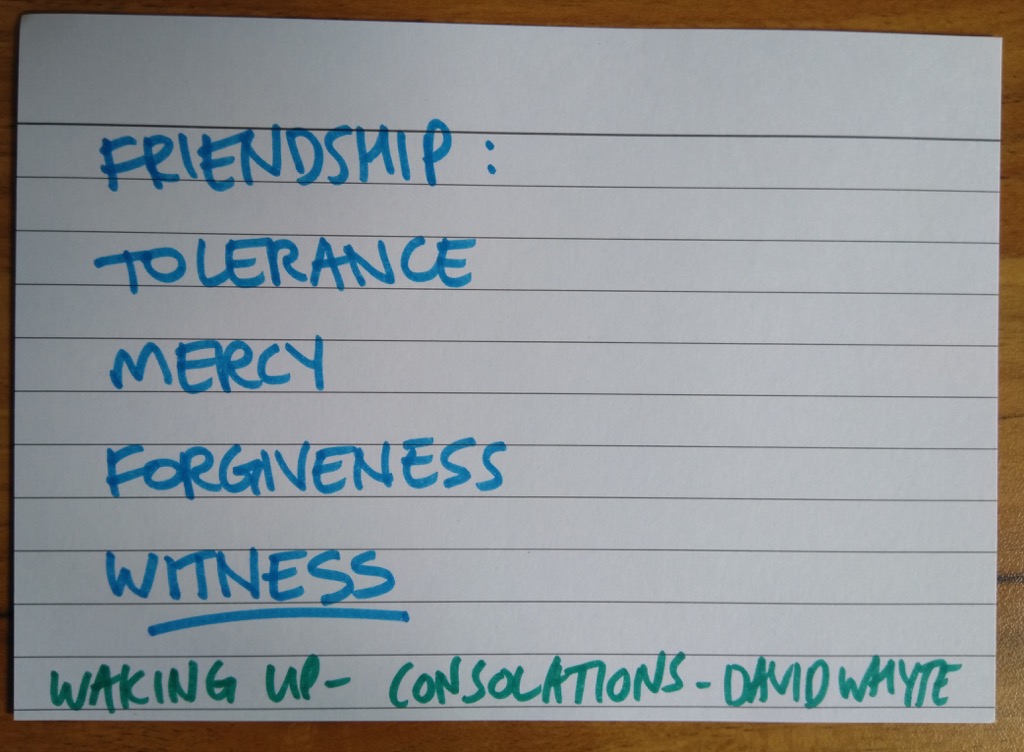 FRIENDSHIP:
TOLERANCE
MERCY
FORGIVENESS
WITNESS
WAKING UP - CONSOLATIONS - DAVID WHYTE